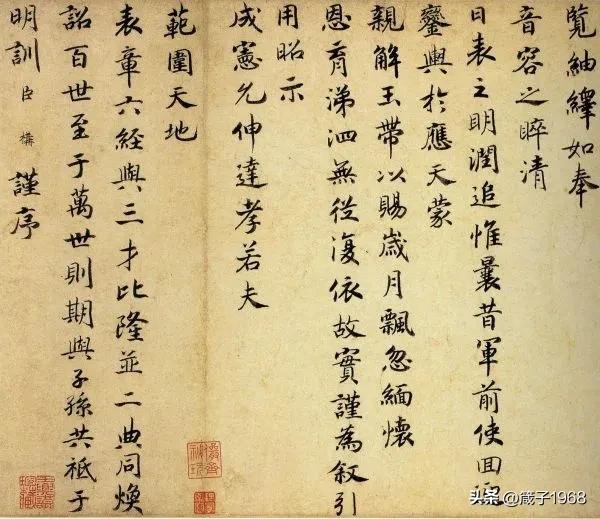 覧紬繹如奉
音容之睟清
日表之明潤追惟曩昔軍前使回迎
鑾輿於應天蒙
親解玉帶以賜歲月飄忽緬懷
恩育涕泗無從復依故實謹為叙引
用昭示
成憲允伸達孝若夫
範圍天地
表章六經與三才比隆並二典同煥
詔百世至于萬世則期與子孫共祗于
明訓臣構謹序
头条 @葳子1968